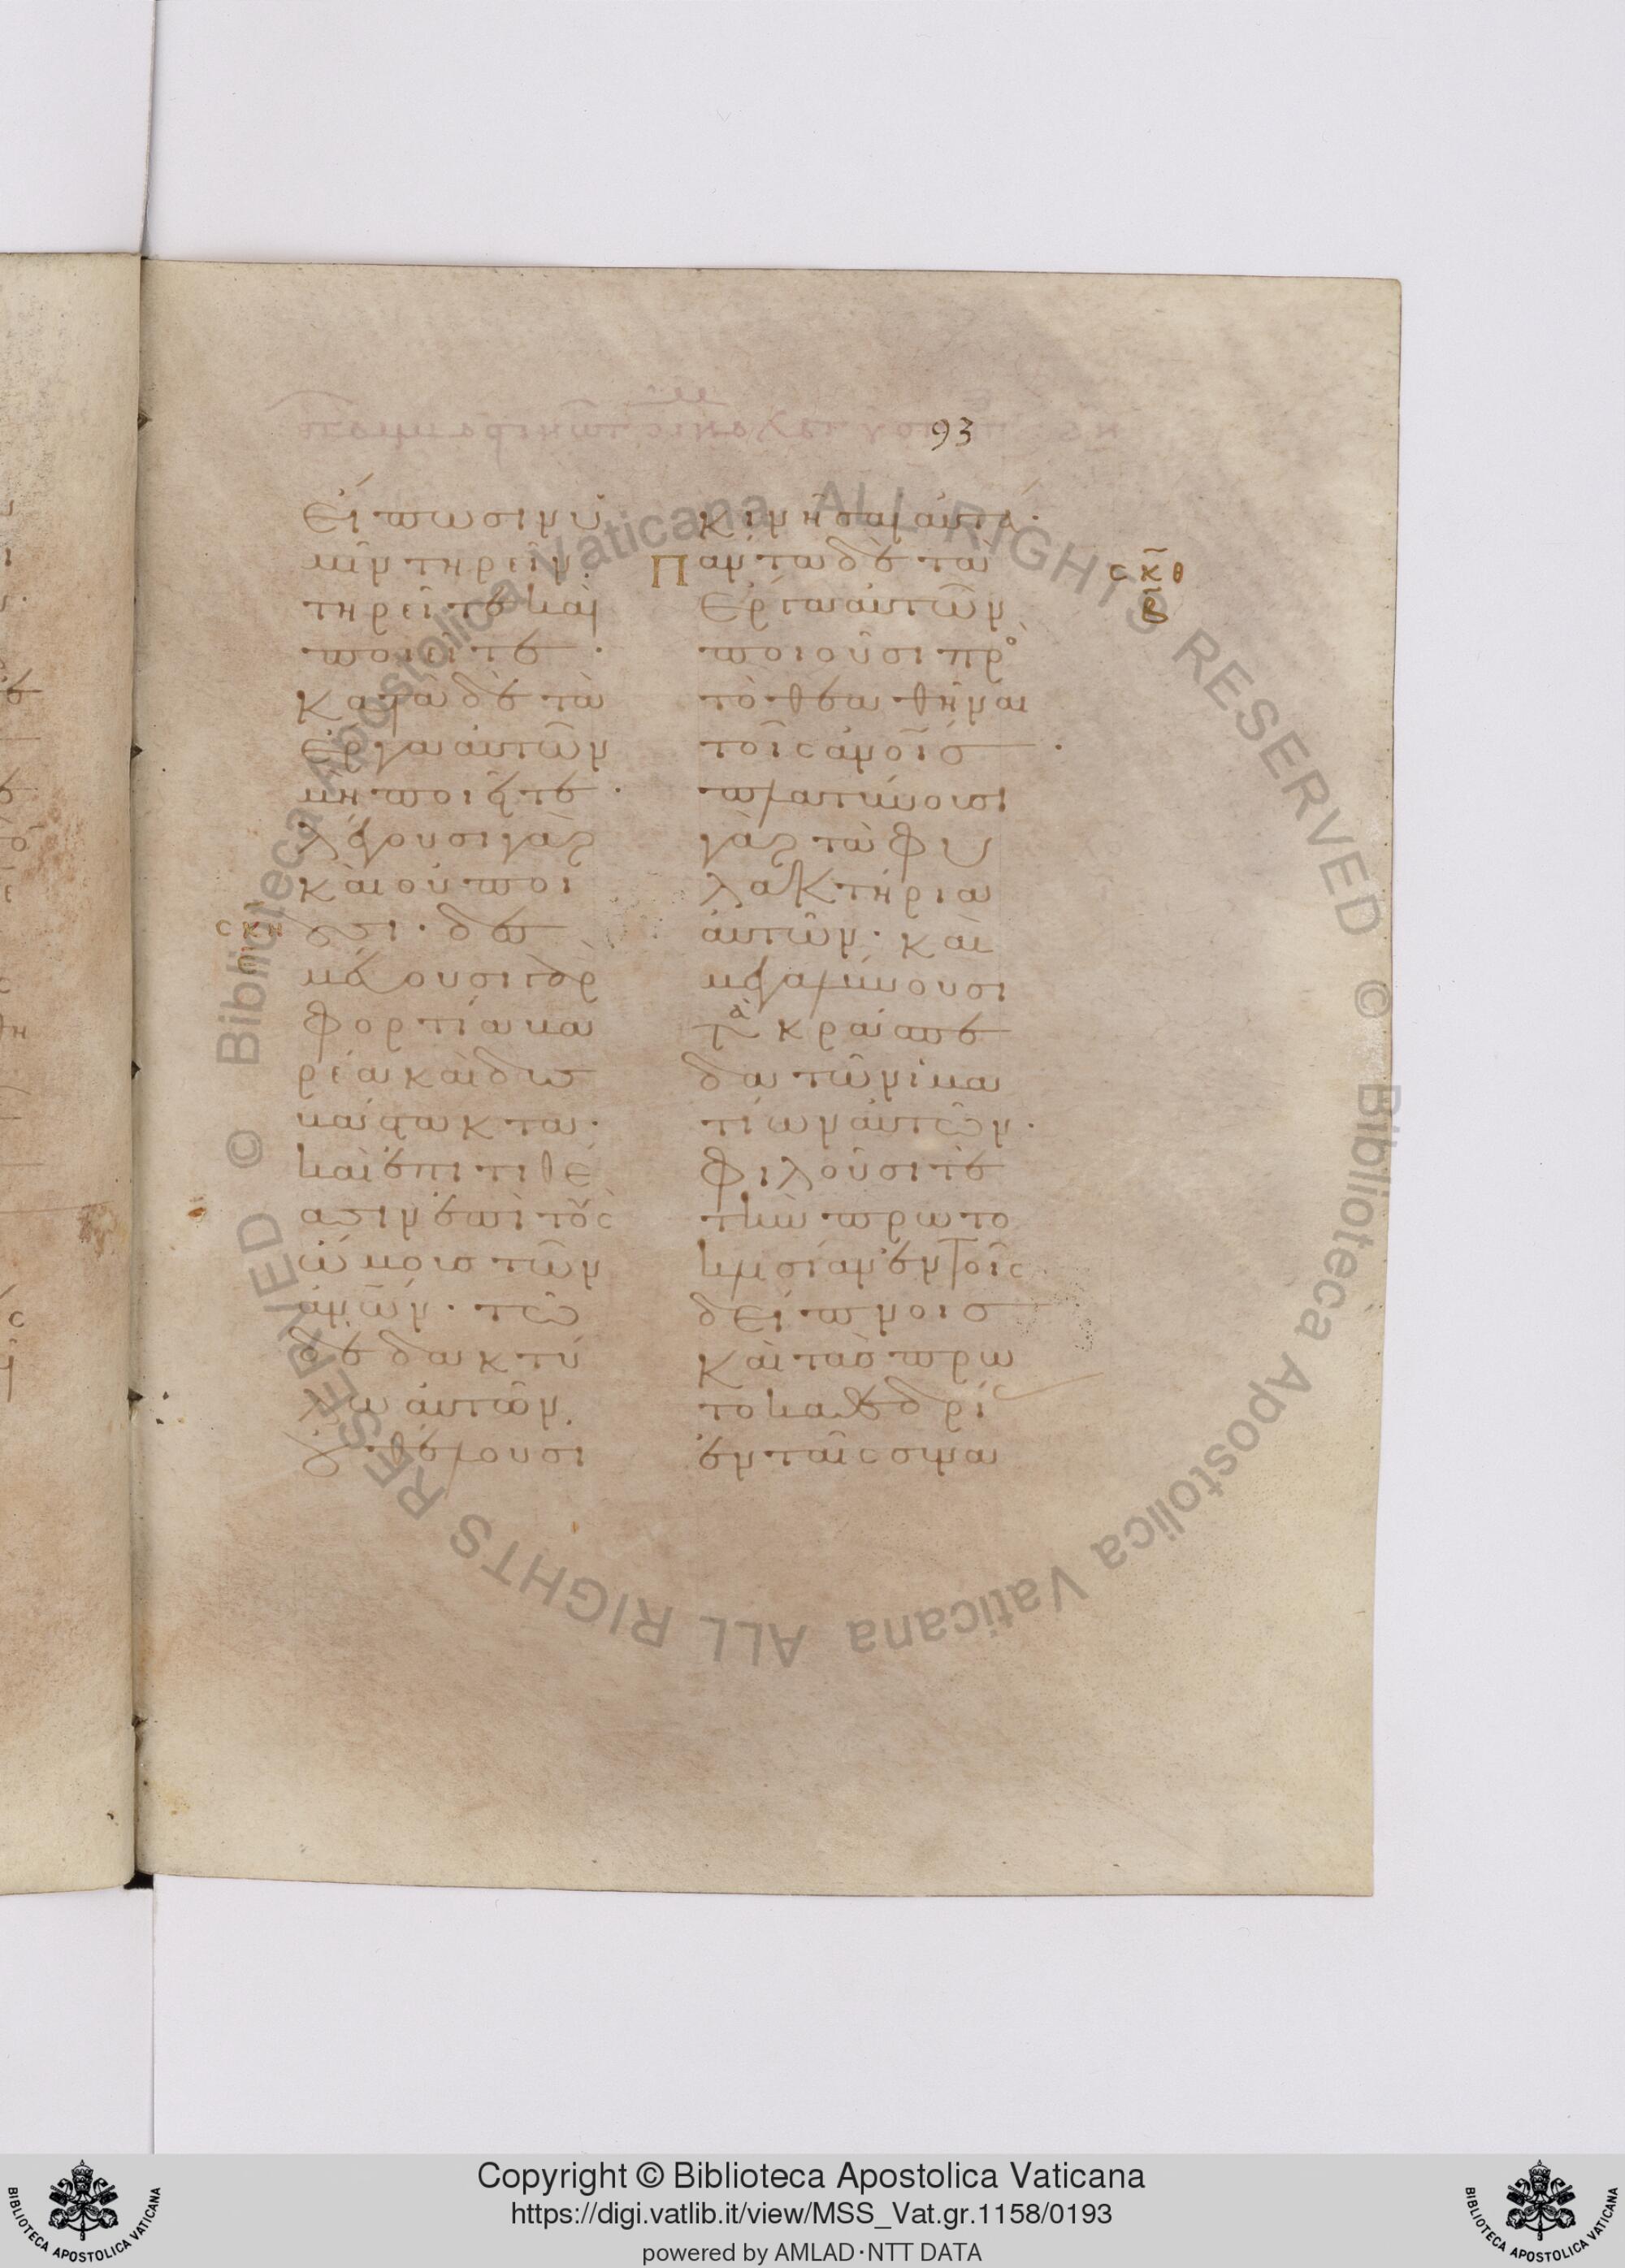 93
εἴπωσιν ὑ
μῖν τηρεῖν.
τηρεῖτε καὶ
ποιεῖτε·
κατὰ δὲ τὰ
ἔργα αὐτῶν
μὴ ποιεῖτε·
λέγουσι γὰρ
καὶ οὐ ποι
οῦσι· δε
σμεύουσι γὰρ
φορτία βα
ρέα καὶ δυσ
βάστακτα·
καὶ ἐπιτιθέ
ασιν ἐπὶ τοὺς
ὤμους τῶν
ἀνῶν· τῷ
δὲ δακτύ
λω αὐτῶν
οὐ θέλουσι
κινῆσαι αὐτά·
Πάντα δὲ τὰ
ἔργα αὐτῶν
ποιοῦσι πρὸ
τὸ θεαθῆναι
τοῖς ἀνοῖς·
πλατύνουσι
γὰρ τὰ φυ
λακτήρια
αὐτῶν· καὶ
μεγαλύνουσι
τὰ κράσπε
δα τῶν ἱμα
τίων αὐτῶν·
φιλοῦσί τε
τὴν πρωτο
κλισίαν ἐν τοῖς
δείπνοις
καὶ τὰς πρω
τοκαθεδρί
ἐν ταῖς συνα
σκθ
β
σκη
Copyright © Biblioteca Apostolica Vaticana
https://digi.vatlib.it/view/MSS_Vat.gr.1158/0193
powered by AMLAD·NTT DATA
BIBLIOTECA APOSTOLICA VATICANA
BIBLIOTECA APOSTOLICA VATICANA
© Biblioteca Apostolica Vaticana ALL RIGHTS RESERVED
© Biblioteca Apostolica Vaticana ALL RIGHTS RESERVED